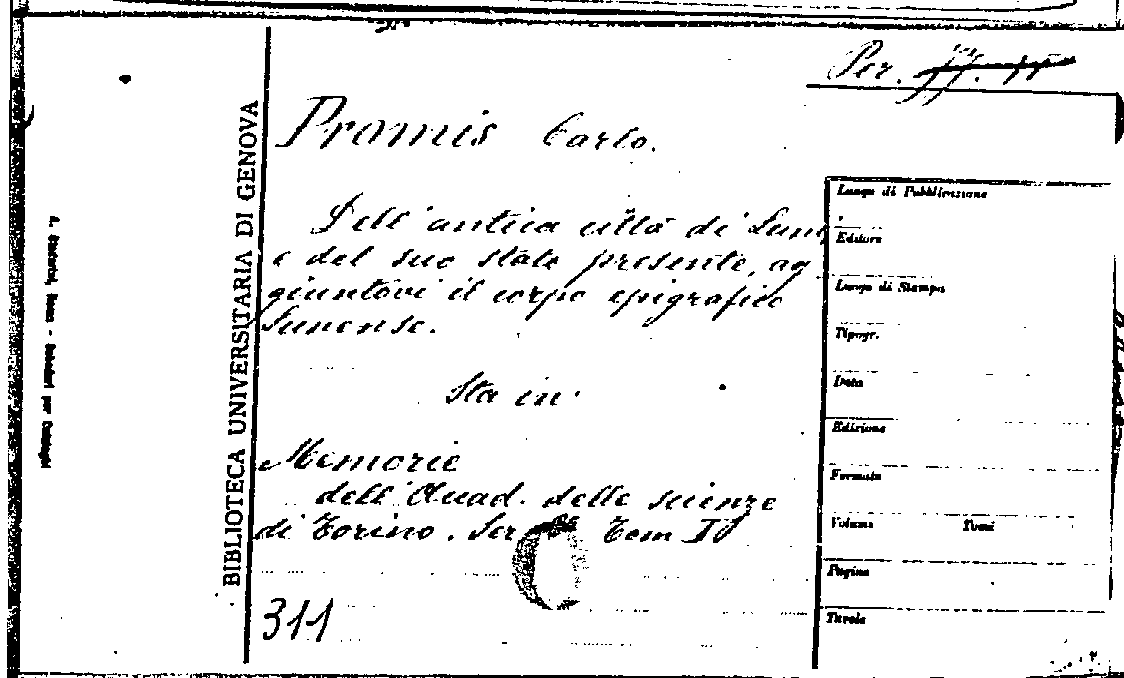 Per.
Promis Carlo.
Dell'antica città di Luni,
e del suo stato presente, ag
giuntovi il corpo epigrafico
Lunense.
Sta in:
Memorie
dell'Acad. delle scienze
di Torino. Ser Tom IV
311
BIBLIOTECA UNIVERSITARIA DI GENOVA
Roma - Schedari per Cataloghi
Luogo di Pubblicazione
Editore
Luogo di Stampa
Tipogr.
Data
Edizione
Formato
Volume Tomi
Pagine
Tavole